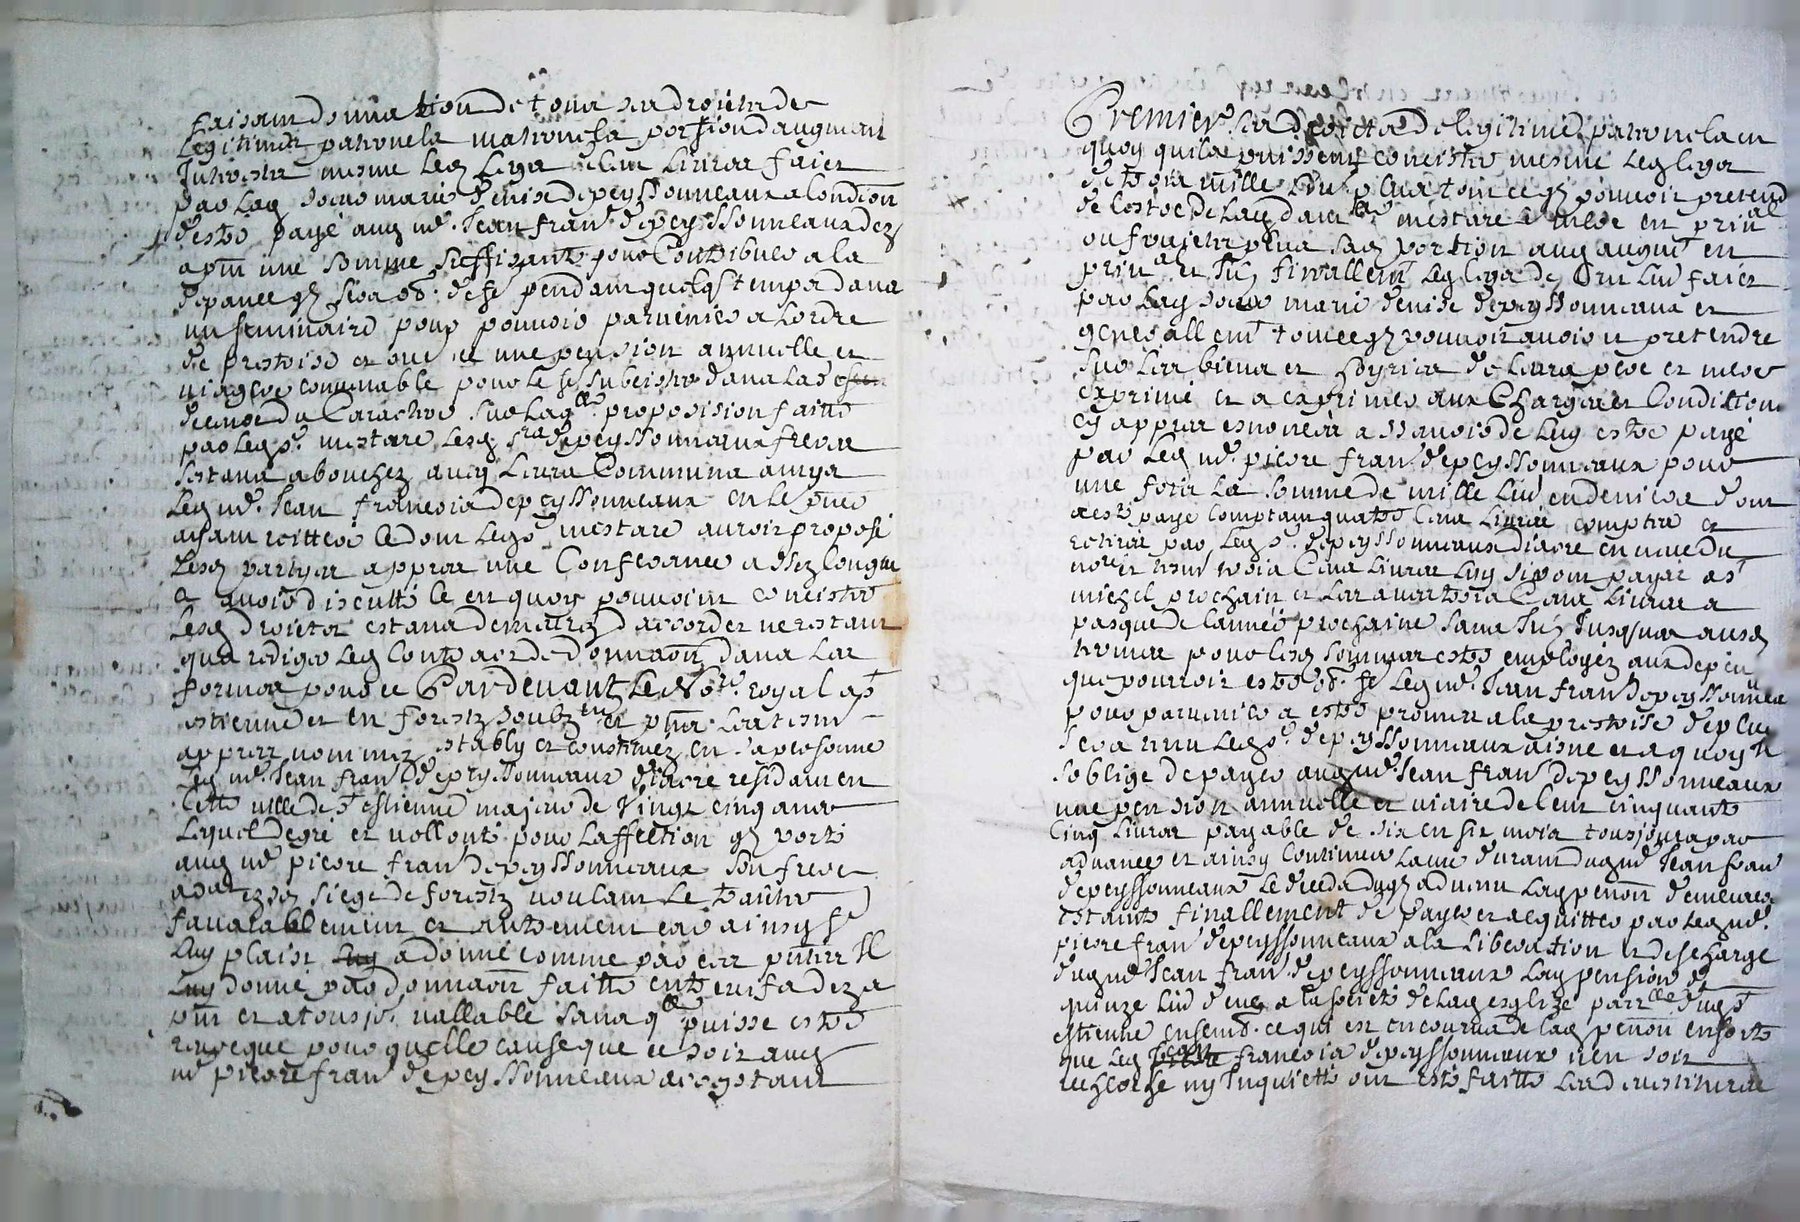 faisant donnation de tous ses droictz de
legitimes paternela maternela portion daugment
Interestz mesme les legz de cent livres faict
par lad. soeur marie denise depeyssonneaux a condition
destre payé aud. mr. Jean fran. depeyssonneaux dez
a pnt une somme suffisante pour contribuer a la
depance ql. sera obl. de fe. pendant quelqs temps dans
un seminaire pour pouvoir parvenir a lordre
de prestrise et oue ce une pension annuelle et
viagere convenable pour le fe. subcister dans lad.
decence du Caractere sur laqlle proposision faitte
par led. sr. mestare lesd. srs depeyssonneaux freres
sestans abouchez avec leurs communs amys
led. mr. Jean francois depeyssonneaux en le pnce
aiant reitteré ce dont led. sr mestare auroit proposé
lesd. partyes appres une conferance assez longue
a avoir discutté le en quoy pouvoint concister
lesd. droictz estans demeurez daccord et ne restant
qua rediger led. contract de donnaon dans les
formes pour ce Pardevant le Nore. royal a st
estienne et en forestz soubzne et pns. les tesm
appres nommez estably et constitué en sa personne
led. mr. Jean fran. depeyssonneaux diacre residant en
cette ville de st estienne majeur de vingt cinq ans
lequel de gré et vollonté pour laffection ql. porte
aud. mr pierre fran. depeyssonneaux son frere
advat ezd. siege de forestz voulant le traitter
favorablement et autrement car ainsy
luy plaist a donné comme par ces pntes Il
donne par donnaon faitte entre vifs dez a
pnt et a tousjs. vallable sans qlle puisse estre
revoquée pour quelle cause que ce soit aud.
mr pierre fran. depeyssonneaux acceptant
Premierт. ses droicts de legitimes paternela en
quoy quils puissent concister mesme les legz
de trois mille liv. plus tout ce ql. pouvoit pretend
de lostoc de lad. dam.lle mestare mere en prinal
ou fruictz plus sad. portion aud. augmt en
prinal et In. finallemt led. legz de cent liv. faict
par lad. soeur marie denise depeyssonneaux et
generallemt tout ce ql. pouvoit avoir et pretendre
sur les biens et hoyries de leurs pere et mere
exprimé et a exprimer aux charges et conditions
cy appres esnoncés a sçavoir de luy estre payé
par led. mr. pierre fran. depeyssonneaux pour
une fois la somme de mille liv. en deniers dont
a esté payé comptant quatre cens livres comptés et
retirés par led. sr. depeyssonneaux diacre en vue du
nore et tesm trois cens livres luy seront payé a st
michel prochain et les autres trois cens livres a
pasque de lannée prochaine sans In. Jusques ausd.
termes pour lesd. sommes estre employez aux depens
que pourroit estre obl. fe led. mr. Jean fran. depeyssonneaux
pour parvenir a estre promeu a la prestrise deplus
sera tenu led. sr. depeyssonneaux aisné et a quoy Il
soblige de payer aud. mr. Jean fran. depeyssonneaux
une pension annuelle et viaire de cent cinquante
cinq livres payable de six en six mois tousjours par
advance et ainsy continuer la vie durant dud. mr Jean fran.
depeyssonneaux le deced dud. advenu lad. penon demeurera
estainte finallement de payer et acquitter par led. mr.
pierre fran. depeyssonneaux a la liberation et descharge
dud. mr Jean fran. depeyssonneaux lad. pension de
quinze liv deue a la societé de lad. esglize parrlle dud. st
estienne ensemb. ce qui est encouru de lad. penon en sorte
que led. Jean francois depeyssonneaux nen soit
recherché ny Inquietté ont esté faitte lesd restitutions